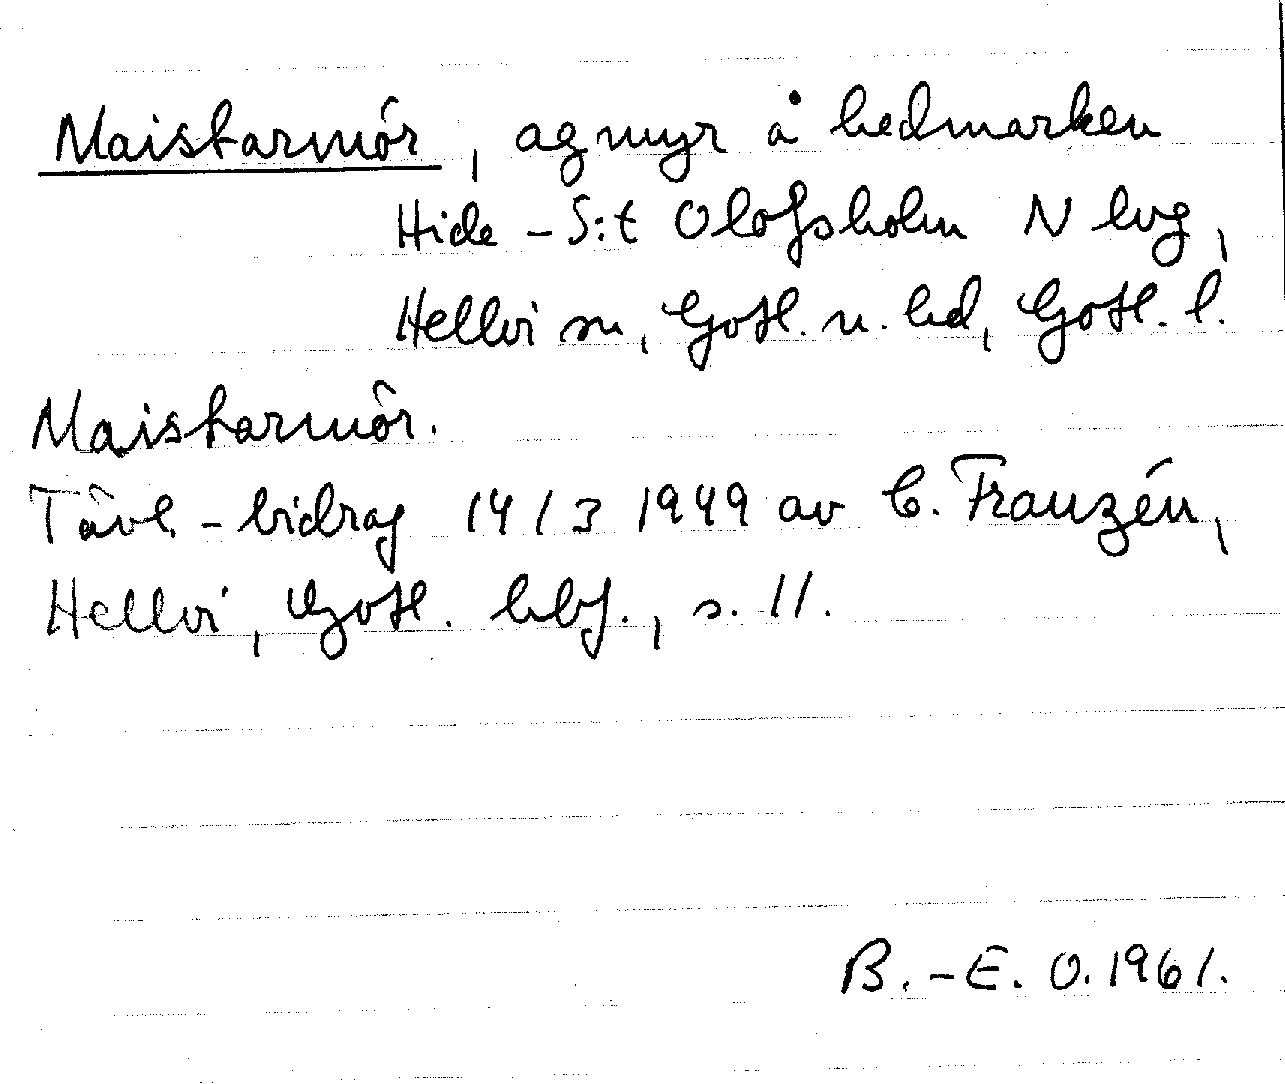 Maistarmôr, agmyr å hedmarken
Hide - S:t Olofsholm N lvg,
Hellvi sn, Gotl. n. hd, Gotl. l.
Maistarmôr.
Tävl. - bidrag 14/3 1949 av C. Franzén,
Hellvi, Gotl. hbf., s. 11.
B.-E. O. 1961.